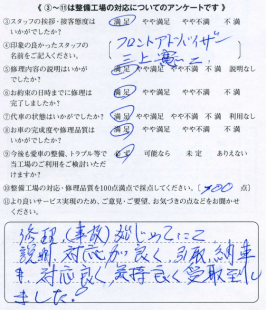 《 ③～⑪は整備工場の対応についてのアンケートです 》
③スタッフの挨拶・接客態度は 満足 やや満足 やや不満 不満
いかがでしたか?
④印象の良かったスタッフの フロントアドバイザー
名前をご記入ください。 三上
⑤修理内容の説明はいかが 満足 やや満足 やや不満 不満 説明なし
でしたか?
⑥お約束の日時までに修理は 満足 やや満足 やや不満 不満
完了しましたか?
⑦代車の状態はいかがでしたか? 満足 やや満足 やや不満 不満 利用なし
⑧お車の完成度や修理品質は 満足 やや満足 やや不満 不満
いかがでしたか?
⑨今後も愛車の整備、トラブル等で 必ず 可能なら 未定 ありえない
当工場のご利用をご検討いた
だけますか?
⑩整備工場の対応・修理品質を100点満点で採点してください。( 100 点)
⑪より良いサービス実現のため、ご意見・ご要望、お気づきの点などをお聞かせ
ください。
修理、(事故)初じめてにて
説明、対応が良く、引取、納車
も、対応良く、気持良く受取致し
ました。